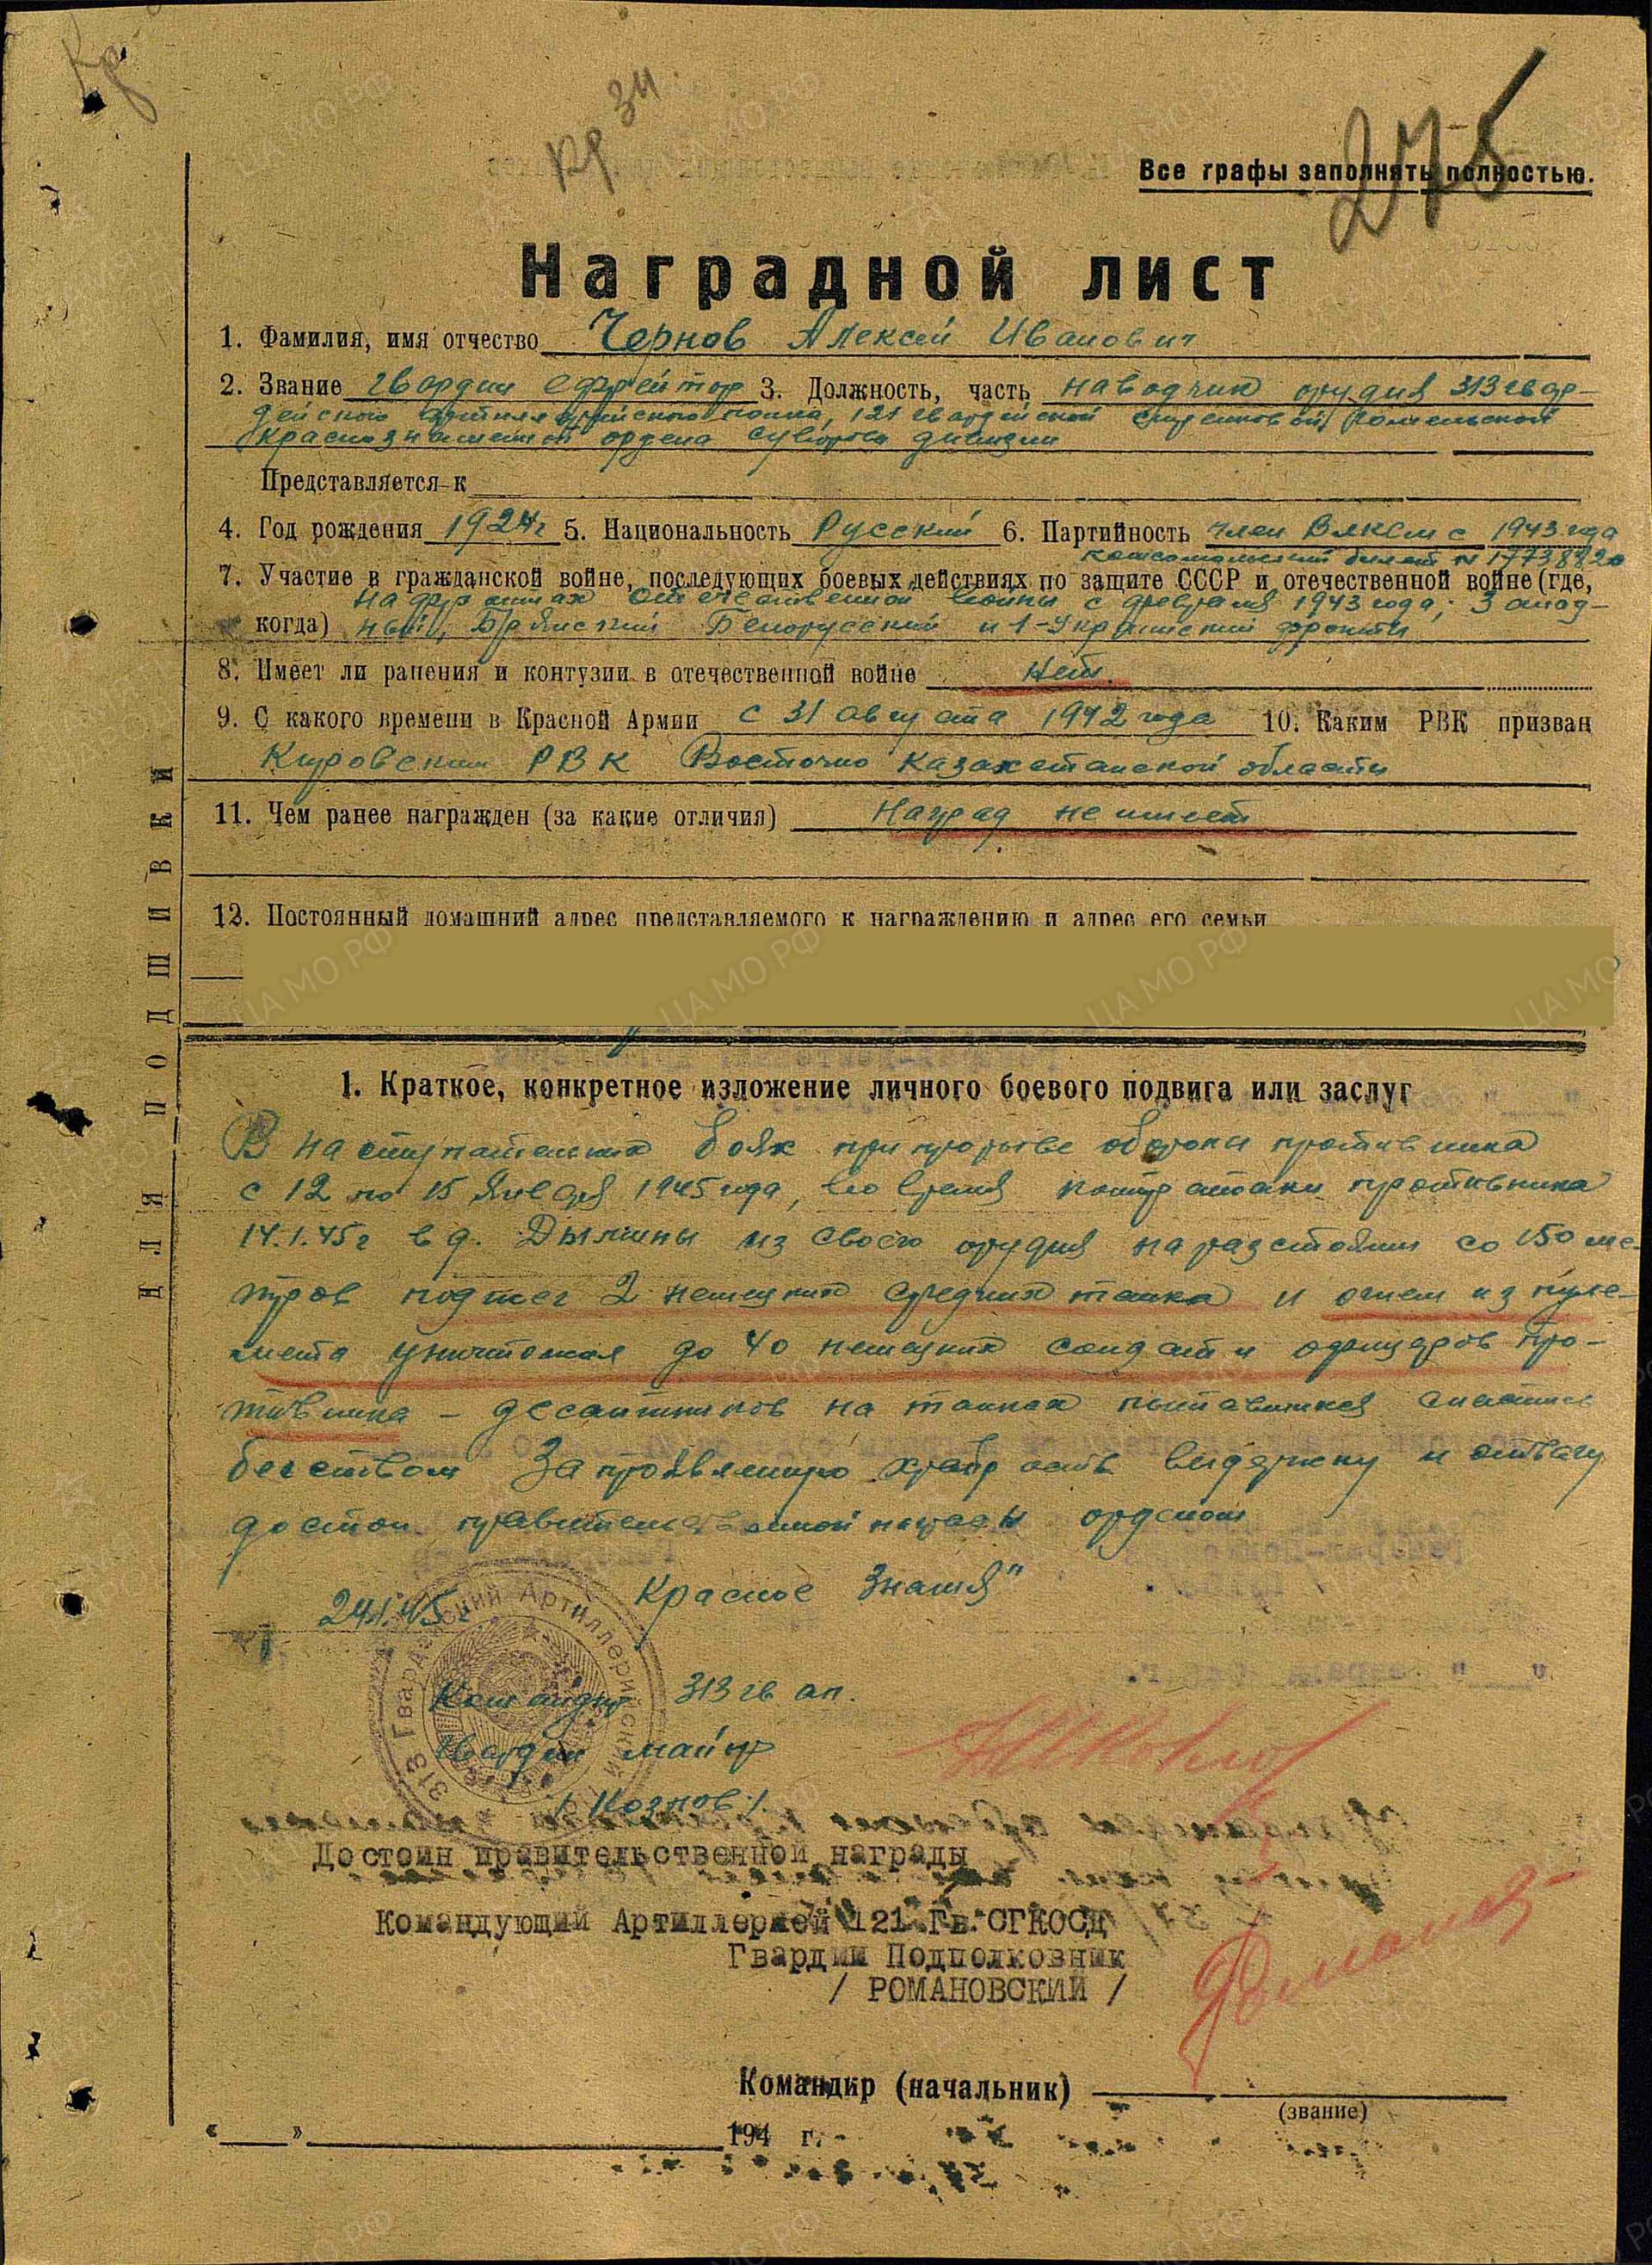 Кр
Кр 34
275
Все графы заполнять полностью.
Наградной лист
1. Фамилия, имя отчество Чернов Алексей Иванович
2. Звание гвардии ефрейтор 3. Должность, часть наводчик орудия 313 гвар-
дейского артиллерийского полка, 121 гвардейской стрелковой Гомельской
краснознаменной ордена Суворова дивизии
Представляется к
4. Год рождения 1924г 5. Национальность Русский 6. Партийность член ВЛКСМ с 1943 года
комсомольский билет № 17738820
7. Участие в гражданской войне, последующих боевых действиях по защите СССР и отечественной войне (где,
на фронтах отечественной войны с февраля 1943 года; Запад-
когда) ный, Брянский Белорусский и 1-Украинский фронты
8. Имеет ли ранения и контузии в отечественной войне нет.
9. С какого времени в Красной Армии с 31 августа 1942 года 10. Каким РВК призван
Кировским РВК Восточно Казахстанской области
11. Чем ранее награжден (за какие отличия) Наград не имеет
12. Постоянный домашний адрес представляемого к награждению и адрес его семьи
ДЛЯ ПОДШИВКИ
1. Краткое, конкретное изложение личного боевого подвига или заслуг
В наступательных боях при прорыве обороны противника
с 12 по 15 января 1945 года, во время контратаки противника
14.1.45г в д. из своего орудия на разстоянии со 150 ме-
тров поджег 2 немецких средних танка и огнем из пуле-
мета уничтожил до 40 немецких солдат и офицеров про-
тивника – десантников на танках пытавшихся спастись
бегством За проявленную храбрость выдержку и отвагу
достоин правительственной награды орденом
Красное Знамя"
24.1.45г
Командир 313 гв ап.
Гвардии майор
/ Кознов /.
313 Гвардейский Артиллерийский
Достоин правительственной награды
Командующий Артиллерией 121 Гв. СГКОСД
Гвардии Подполковник
/ РОМАНОВСКИЙ /
Командир (начальник)
(звание)
« » 194 г.
ЦА МО РФ